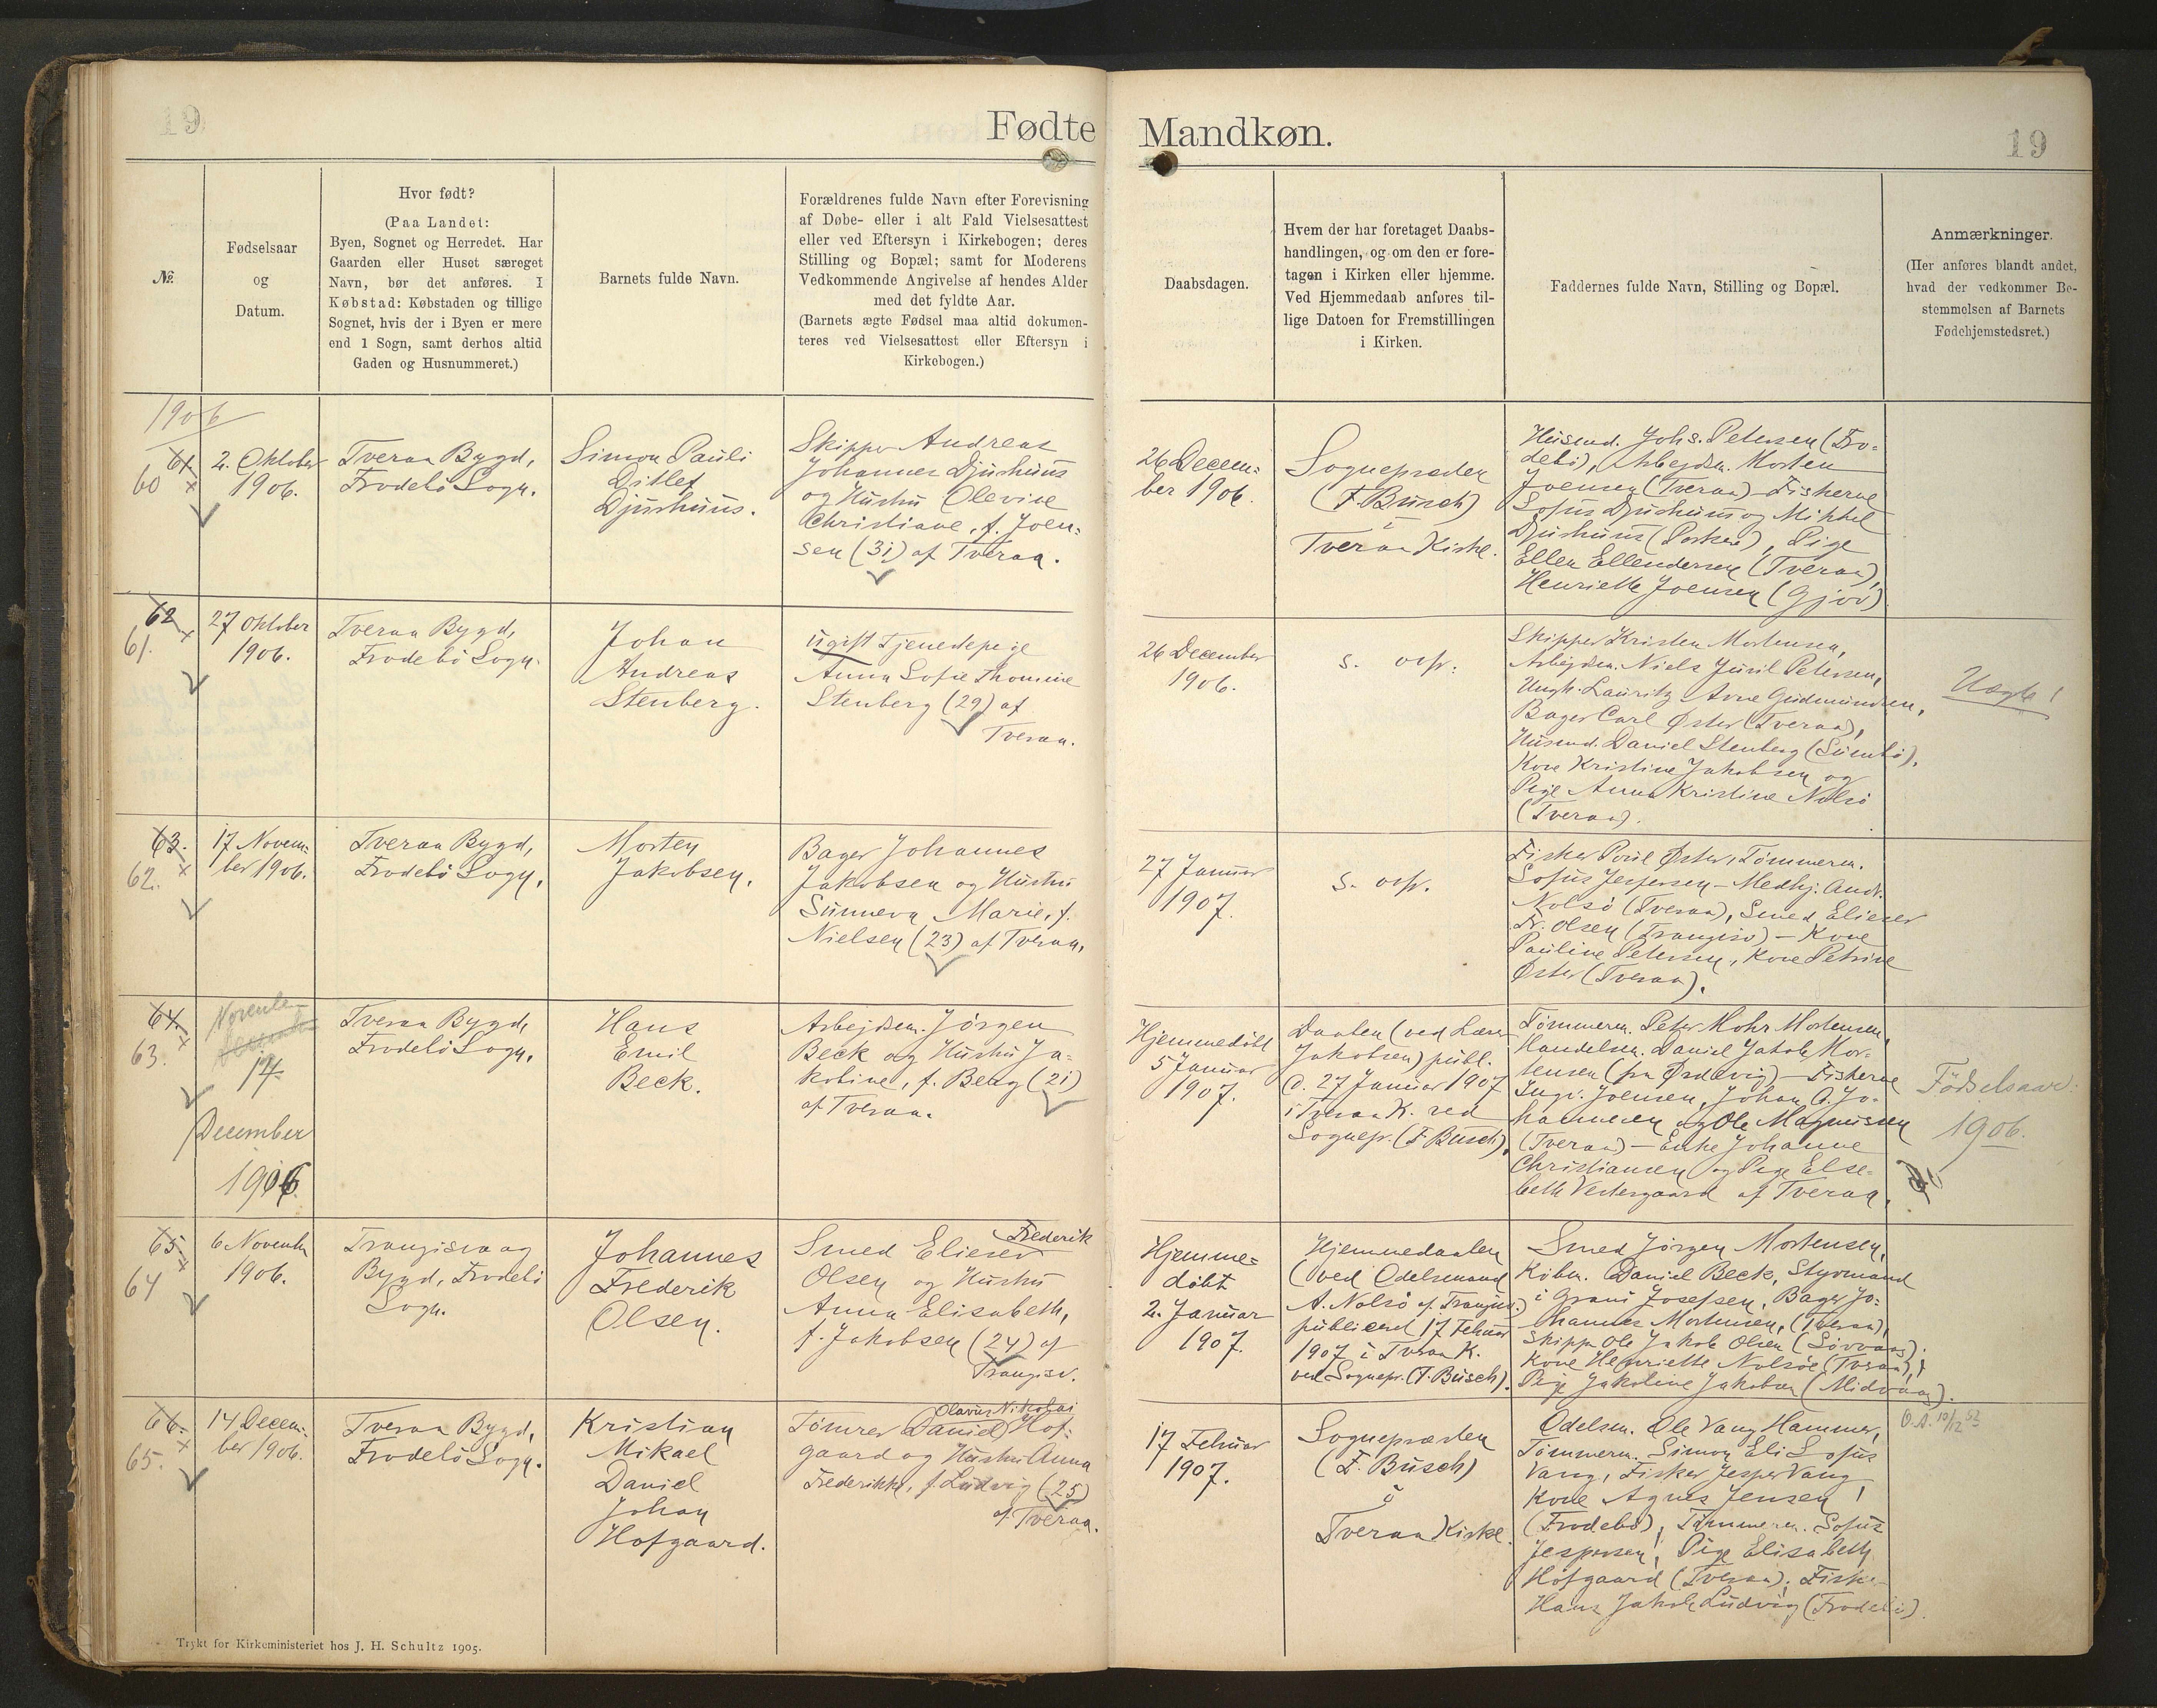 19
Fødte
Mandkøn.
19
№
Fødselsaar
og
Datum.
Hvor født?
(Paa Landet:
Byen, Sognet og Herredet. Har
Gaarden eller Huset særeget
Navn, bør det anføres. I
Købstad: Købstaden og tillige
Sognet, hvis der i Byen er mere
end 1 Sogn, samt derhos altid
Gaden og Husnummeret.)
Barnets fulde Navn.
Forældrenes fulde Navn efter Forevisning
af Døbe- eller i alt Fald Vielsesattest
eller ved Eftersyn i Kirkebogen; deres
Stilling og Bopæl; samt for Moderens
Vedkommende Angivelse af hendes Alder
med det fyldte Aar.
(Barnets ægte Fødsel maa altid dokumen-
teres ved Vielsesattest eller Eftersyn i
Kirkebogen.)
Daabsdagen.
Hvem der har foretaget Daabs-
handlingen, og om den er fore-
tagen i Kirken eller hjemme.
Ved Hjemmedaab anføres til-
lige Datoen for Fremstillingen
i Kirken.
Faddernes fulde Navn, Stilling og Bopæl.
Anmærkninger.
(Her anføres blandt andet,
hvad der vedkommer Be-
stemmelsen af Barnets
Fødehjemstedsret.)
1906
61.
60
2. Oktober
1906.
Tveraa Bygd,
Frodebö Sogn.
Simon Pauli
Ditlef
Djurhuus.
Skipper Andreas
Johannes Djurhuus
og Hustru Olevine
Christiane, f. Joen-
sen (31) af Tveraa.
26 Decem-
ber 1906.
Sognepræsten
(F. Busch)
i
Tveraa Kirke.
Husmd. Johs. Petersen (Fro-
debö), Arbejdsm. Morten
Joensen (Tveraa) – Fiskerne
Sofus Djurhuus og Mikkel
Djurhuus (Porkere), Pige
Ellen Ellendersen (Tveraa),
Henriette Joensen (Gjov)
62
61.
27 Oktober
1906.
Tveraa Bygd,
Frodebö Sogn.
Johan
Andreas
Stenberg.
ugift Tjenestepige
Anna Sofie Thomine
Stenberg (29) af
Tveraa.
26 December
1906.
s. ovf.
Skipper Kristen Mortensen,
Arbejdsm. Niels Juul Petersen,
Ungk. Lauritz Arne Gudmundsen,
Bager Carl Øster (Tveraa),
Husmd. Daniel Stenberg (Sumbö),
Kone Kristine Jakobsen og
Pige Anna Kristine Nolsö
(Tveraa).
Uægte!
63.
62.
17 Novem-
ber 1906.
Tveraa Bygd,
Frodebö Sogn.
Morten
Jakobsen.
Bager Johannes
Jakobsen og Hustru
Sunneva Marie, f.
Nielsen (23) af Tveraa.
27 Januar
1907.
s. ovf.
Fisker Poul Øster, Tömmerm.
Sofus Jespersen – Medhj. Andr.
Nolsö (Tveraa), Smed Elieser
Fr. Olsen (Trangisv) – Kone
Pauline Petersen, Kone Petrine
Øster (Tveraa).
64.
63.
November
17
December
1906.
Tveraa Bygd,
Frodebö Sogn.
Hans
Emil
Beck.
Arbejdsm. Jörgen
Beck og Hustru Ja-
kobine, f. Berg (21)
af Tveraa.
Hjemmedöbt
5 Januar
1907.
Daaben (ved Lærer
Jakobsen) publ.
d. 27 Januar 1907
i Tveraa K. ved
Sognepr. (F. Busch).
Tömmerm. Peter Mohr Mortensen,
Handelsm. Daniel Jakob Mor-
tensen (fra Ørdevig) – Fiskerne
Ingv. Joensen, Johan A. Jo-
hannesen og Ole Magnussen
(Tveraa) – Enke Johanne
Christiansen og Pige Else-
beth Vestergaard af Tveraa.
Födselsaar:
1906.
65.
64
6 November
1906.
Trangisvaag
Bygd, Frodebö
Sogn.
Johannes
Frederik
Olsen.
Frederik
Smed Elieser
Olsen og Hustru
Anna Elisabeth,
f. Jakobsen (24) af
Trangisv.
Hjemme-
döbt
2. Januar
1907.
Hjemmedaaben
(ved Odelsmand
A. Nolsö af Trangisv.)
publiceret 17 Februar
1907 i Tveraa K.
ved Sognepr. (F. Busch).
Smed Jörgen Mortensen,
Köbm. Daniel Beck, Styrmand
i Grani Josefsen, Bager Jo-
hannes Mortensen, (Tveraa),
Skipper Ole Jakob Olsen (Sörvaag).
Kone Henriette Nolsöe (Tveraa),
Pige Jakobine Jakobsen (Midvaag).
66.
65.
14 Decem-
ber 1906.
Tveraa Bygd,
Frodebö Sogn.
Kristian
Mikael
Daniel
Johan
Hofgaard.
Olavus Nikolai
Tömrer Daniel Hof-
gaard og Hustru Anna
Frederikke, f. Ludvig (25)
af Tveraa.
17 Februar
1907.
Sognepræsten
(F. Busch)
i
Tveraa Kirke.
Odelsm. Ole Vang Hammer,
Tömmerm. Simon Eli Sofus
Vang, Fisker Jesper Vang,
Kone Agnes Jensen
(Frodebö), Tömmerm. Sofus
Jespersen, Pige Elisabeth
Hofgaard (Tveraa), Fisker
Hans Jakob Ludvig (Frodebö).
Trykt for Kirkeministeriet hos J. H. Schultz 1905.